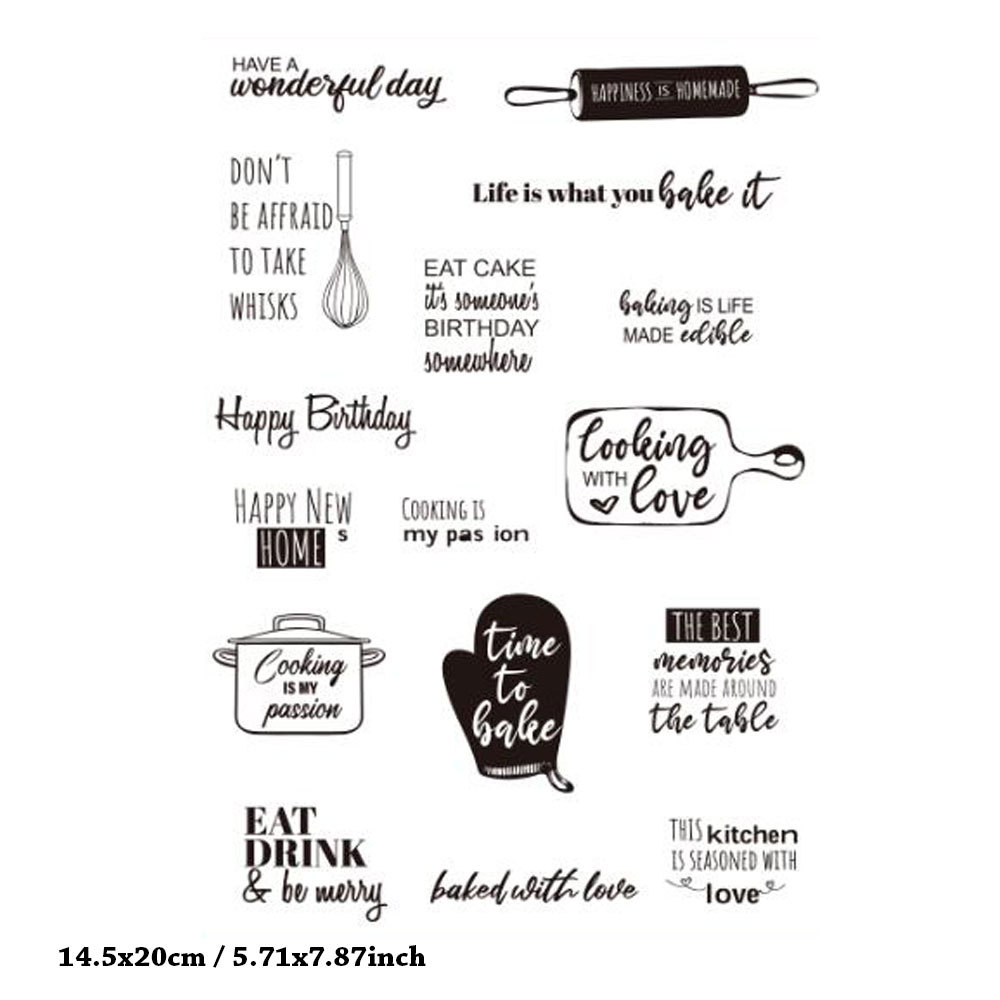 HAVE A
wonderful day
HAPPINESS IS HOMEMADE
DON'T
BE AFFRAID
TO TAKE
WHISKS
Life is what you bake it
EAT CAKE
it's someone's
BIRTHDAY
somewhere
baking IS LiFE
MADE edible
Happy Birthday
Cooking
WITH
love
HAPPY NEW
HOME s
COOKING IS
my pas ion
Cooking
IS MY
passion
time
to
bake
THE BEST
memories
ARE MADE AROUND
the table
EAT
DRINK
& be merry
baked with love
THIS kitchen
IS SEASONED WITH
love
14.5x20cm / 5.71x7.87inch